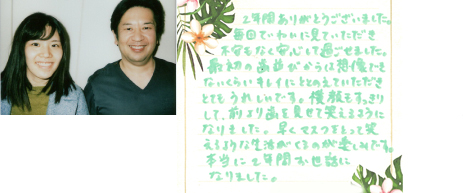 2年間ありがとうございました。
毎回ていねいに見ていただき
不安もなく安心して過ごせました。
最初の歯並びからは想像でき
ないくらいキレイにととのえていただき
とてもうれしいです。横顔もすっきり
して、前より歯を見せて笑えるように
なりました。早くマスクをとって笑
えるような生活がくるのが楽しみです。
本当に2年間お世話に
なりました。